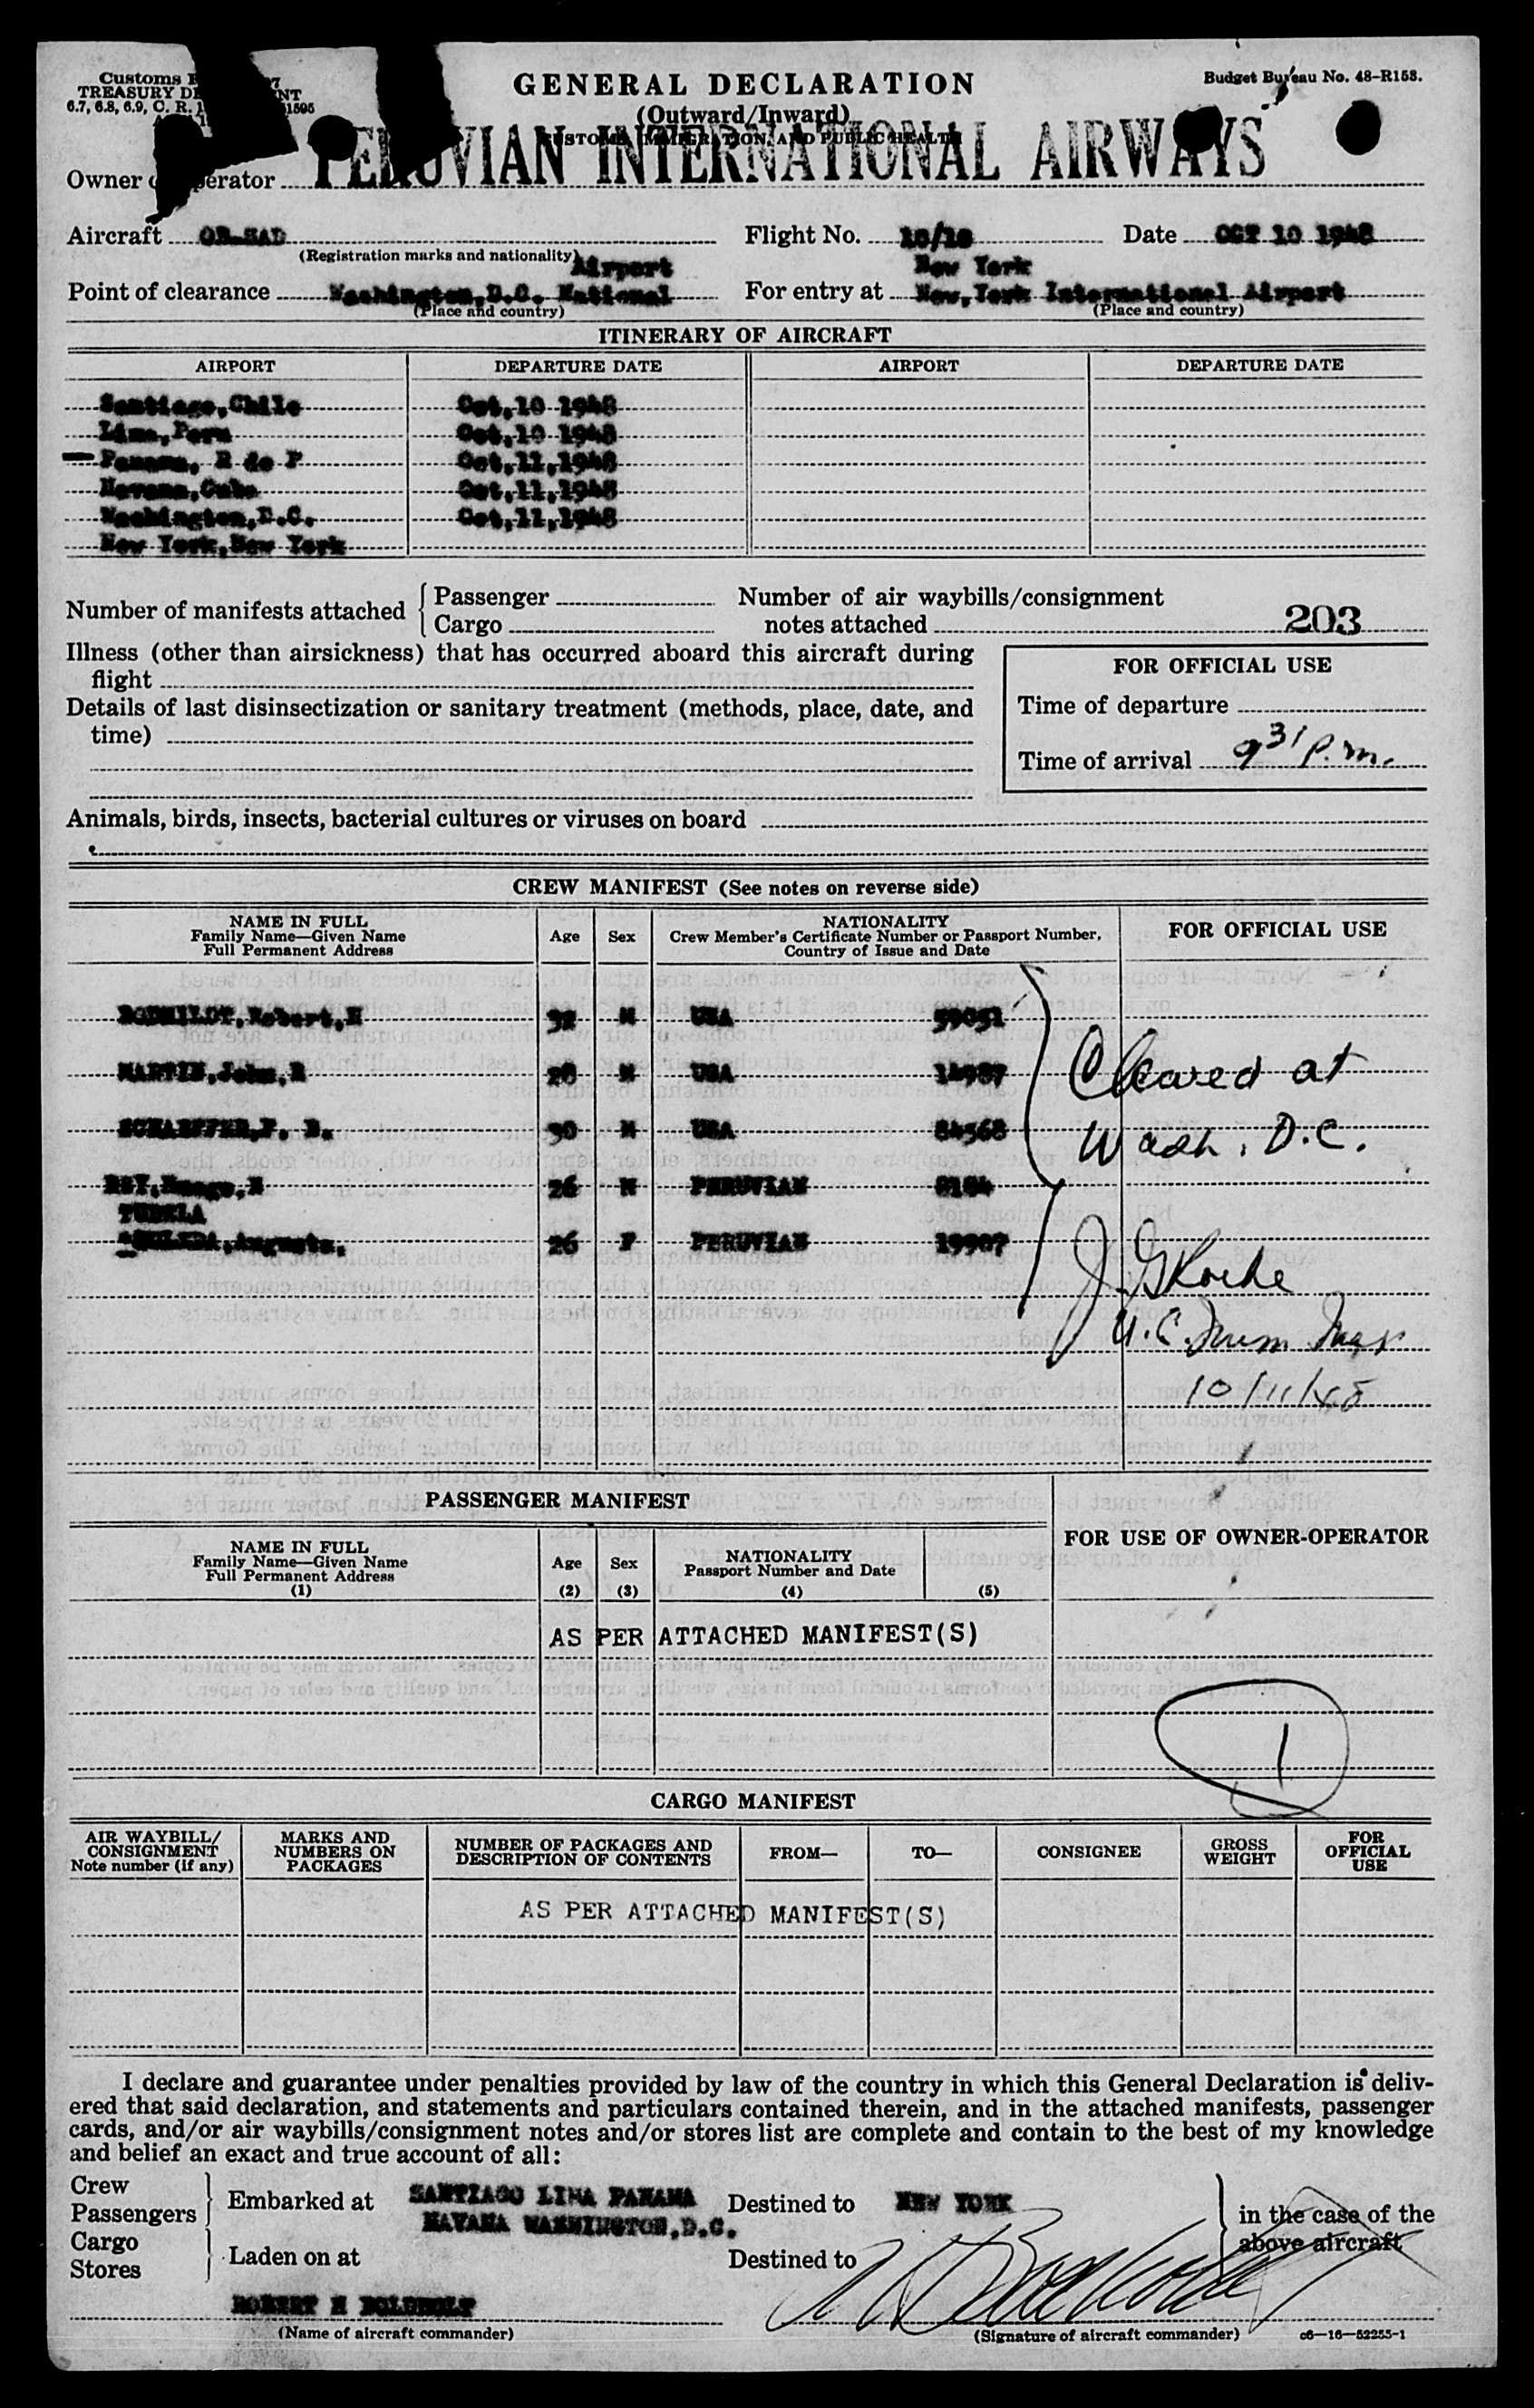 Customs
TREASURY
6.7, 6.8, 6.9, C. R.
GENERAL DECLARATION
(Outward/Inward)
CUSTOMS, IMMIGRATION, AND PUBLIC HEALTH
Budget Bureau No. 48-R153.
Owner PERUVIAN INTERNATIONAL AIRWAYS
Aircraft
(Registration marks and nationality)
Flight No. Date OCT 10 1948
Airport
New York
Point of clearance Washington,D.C. National
(Place and country)
For entry at New,York International Airport
(Place and country)
ITINERARY OF AIRCRAFT
AIRPORT DEPARTURE DATE AIRPORT DEPARTURE DATE
Santiago,Chile Oct,10 1948
Lima,Peru Oct,10 1948
Panama, R de P Oct,11,1948
Havana,Cuba Oct,11,1948
Washington,D.C. Oct,11,1948
New York,New York
Number of manifests attached { Passenger
Cargo
Number of air waybills/consignment
notes attached 203
Illness (other than airsickness) that has occurred aboard this aircraft during
flight
Details of last disinsectization or sanitary treatment (methods, place, date, and
time)
FOR OFFICIAL USE
Time of departure
Time of arrival 9 31 p.m.
Animals, birds, insects, bacterial cultures or viruses on board
CREW MANIFEST (See notes on reverse side)
NAME IN FULL
Family Name—Given Name
Full Permanent Address
Age
Sex
NATIONALITY
Crew Member's Certificate Number or Passport Number,
Country of Issue and Date
FOR OFFICIAL USE
Robert,H 32 M USA 39051
MARTIN,John,R 28 M USA 14987
SCHAEFFER,F. 30 M USA 84568
REY, 26 M PERUVIAN
TUDELA
Augusta. 26 F PERUVIAN 19907
Cleared at
Wash. D.C.
10/11/48
PASSENGER MANIFEST
NAME IN FULL
Family Name—Given Name
Full Permanent Address
(1)
Age
(2)
Sex
(3)
NATIONALITY
Passport Number and Date
(4)
(5)
FOR USE OF OWNER-OPERATOR
AS PER ATTACHED MANIFEST(S)
1
CARGO MANIFEST
AIR WAYBILL/
CONSIGNMENT
Note number (if any)
MARKS AND
NUMBERS ON
PACKAGES
NUMBER OF PACKAGES AND
DESCRIPTION OF CONTENTS
FROM—
TO—
CONSIGNEE
GROSS
WEIGHT
FOR
OFFICIAL
USE
AS PER ATTACHED MANIFEST(S)
I declare and guarantee under penalties provided by law of the country in which this General Declaration is deliv-
ered that said declaration, and statements and particulars contained therein, and in the attached manifests, passenger
cards, and/or air waybills/consignment notes and/or stores list are complete and contain to the best of my knowledge
and belief an exact and true account of all:
Crew
Passengers
Cargo
Stores
Embarked at SANTIAGO LIMA PANAMA
HAVANA WASHINGTON,D.C.
Destined to NEW YORK
Laden on at
Destined to
in the case of the
above aircraft
ROBERT H
(Name of aircraft commander)
(Signature of aircraft commander)
c6—16—52255-1